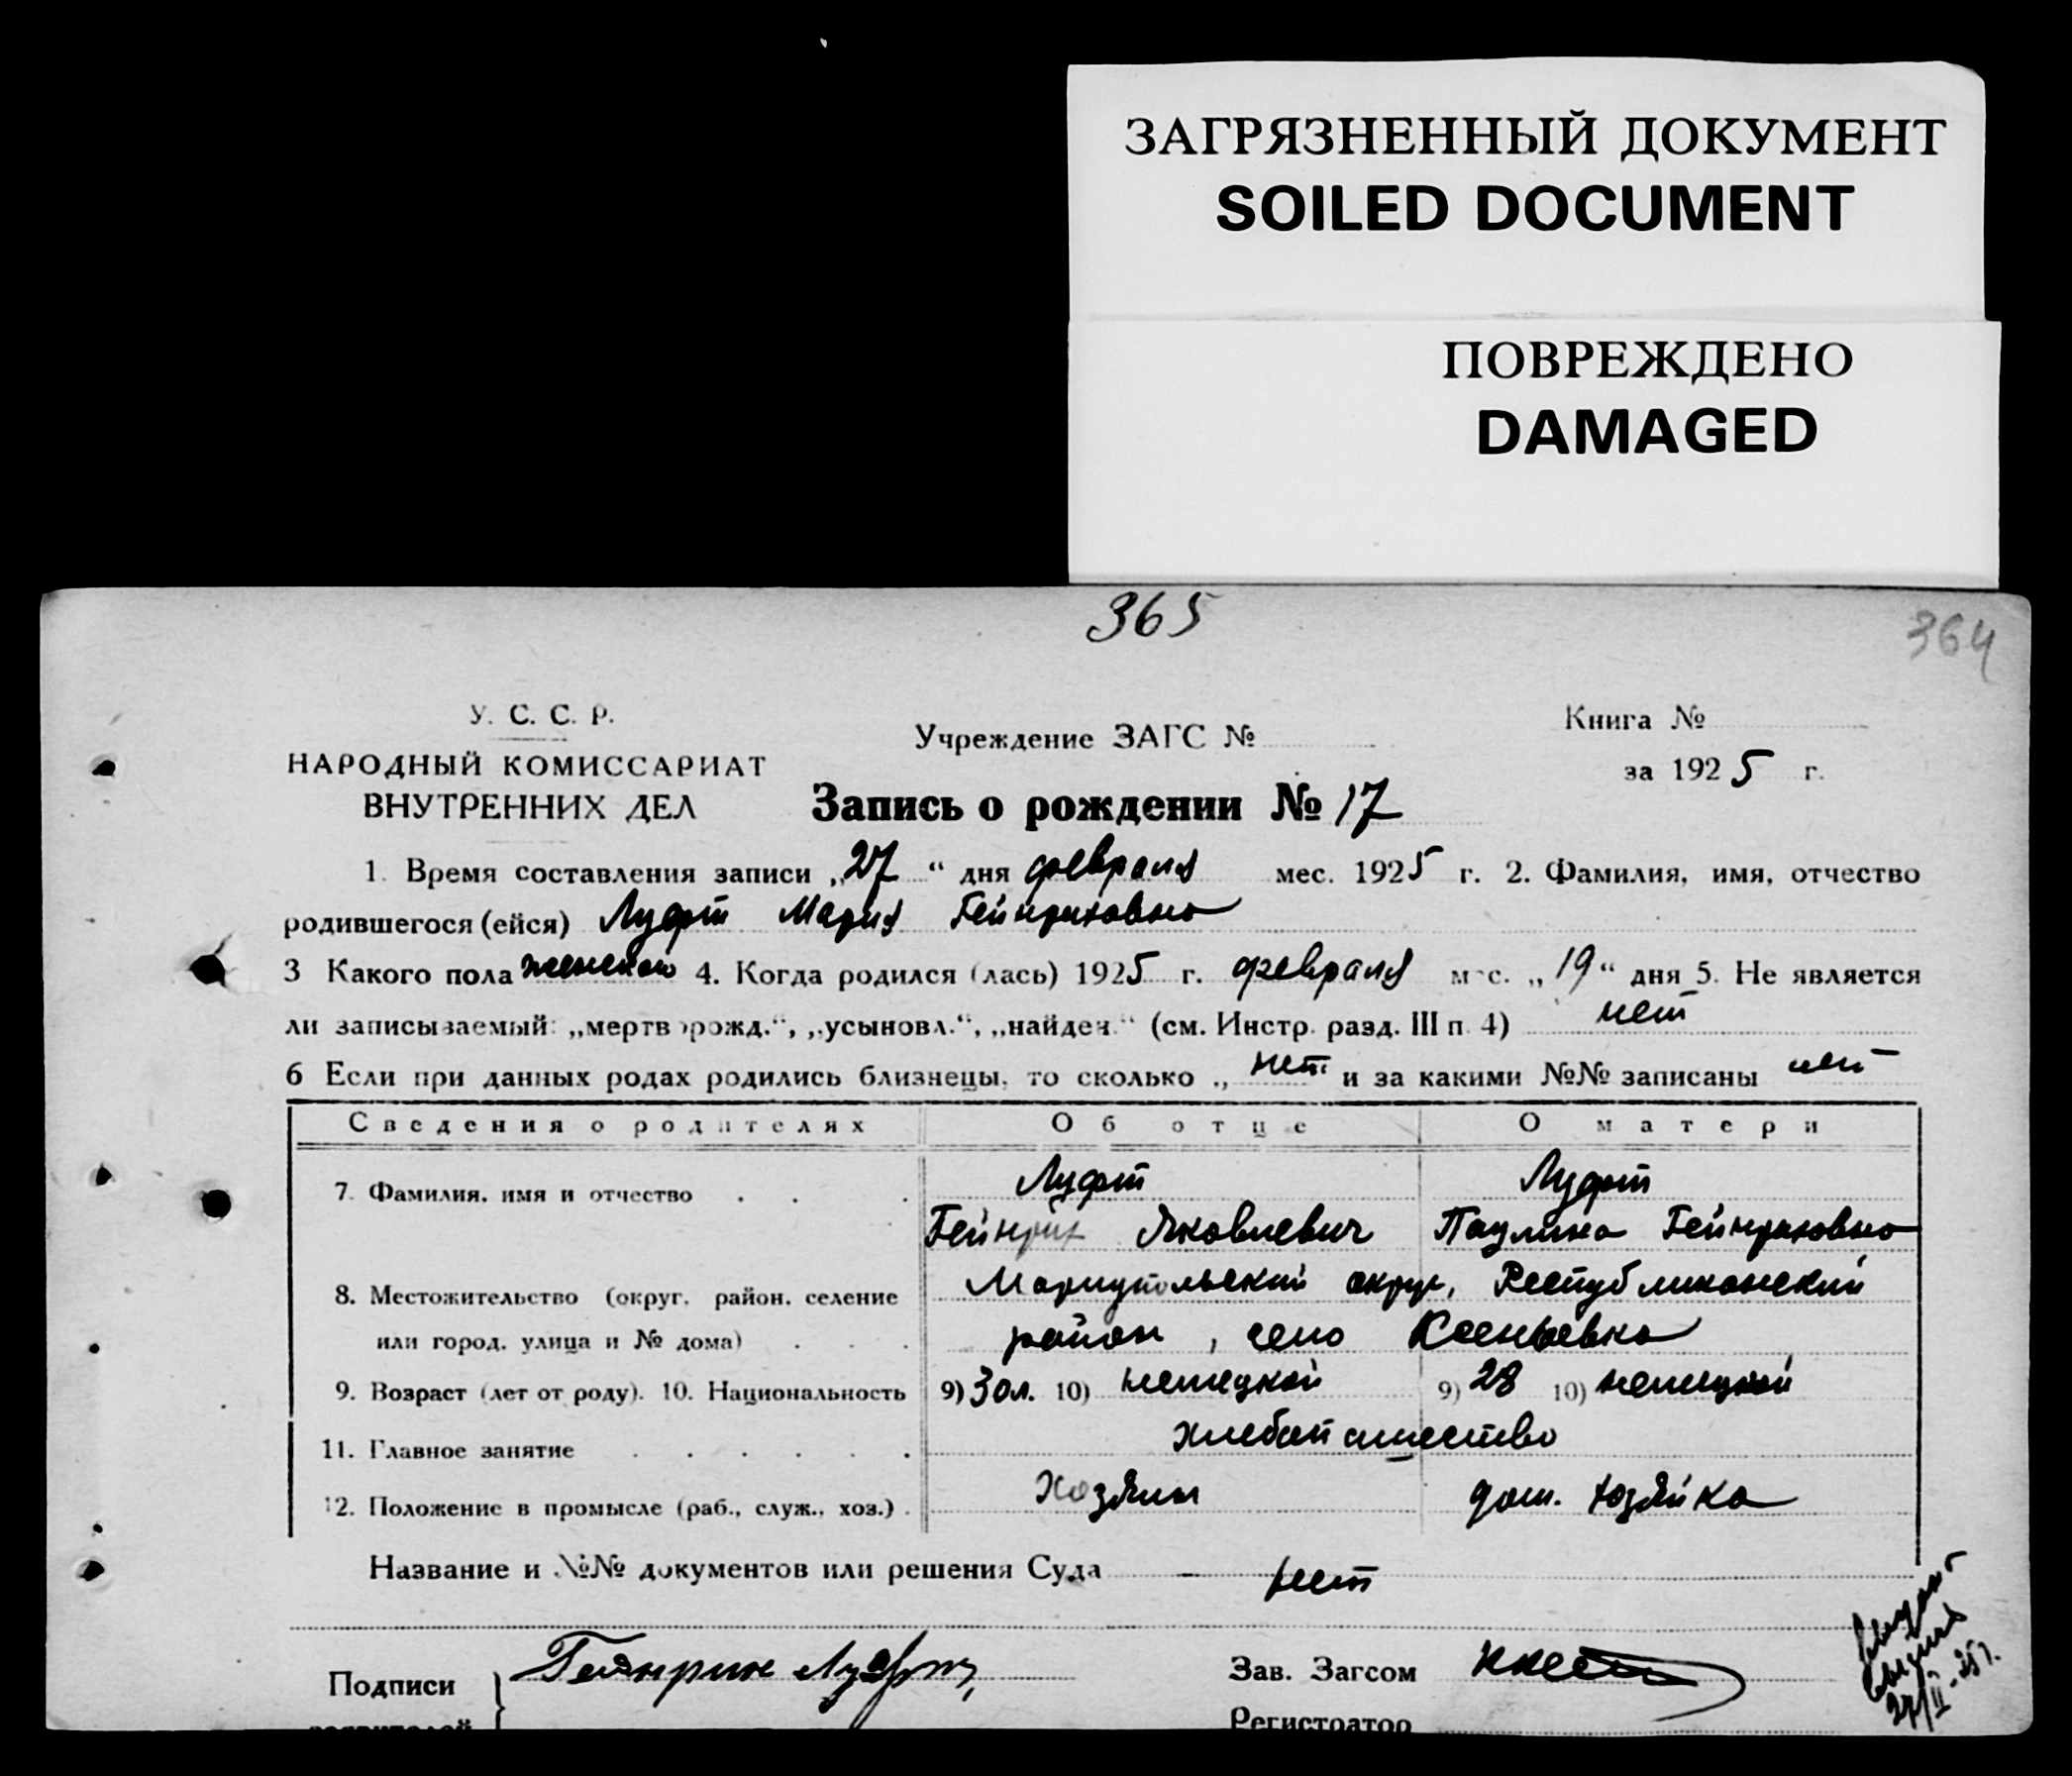 ЗАГРЯЗНЕННЫЙ ДОКУМЕНТ
SOILED DOCUMENT
ПОВРЕЖДЕНО
DAMAGED
365
364
У. С. С. Р.
НАРОДНЫЙ КОМИССАРИАТ
ВНУТРЕННИХ ДЕЛ
Учреждение ЗАГС №
Книга №
за 1925 г.
Запись о рождении № 17
1. Время составления записи „27“ дня февраля мес. 1925 г. 2. Фамилия, имя, отчество
родившегося (ейся) Луфт Мария Гейнриховна
3 Какого пола женского 4. Когда родился (лась) 1925 г. февраля мес. „19“ дня 5. Не является
ли записываемый: „мертворожд.“, „усыновл.“, „найден.“ (см. Инстр. разд. III п. 4) нет
6 Если при данных родах родились близнецы, то сколько „ нет и за какими №№ записаны нет
Сведения о родителях Об отце О матери
7. Фамилия, имя и отчество Луфт Луфт
Гейнрих Яковлевич Паулина Гейнриховна
8. Местожительство (округ, район, селение Мариупольский округ, Республиканский
или город, улица и № дома) район, село Ксеньевка
9. Возраст (лет от роду). 10. Национальность 9) 30 л. 10) немецкой 9) 28 10) немецкой
11. Главное занятие хлебопашество
12. Положение в промысле (раб., служ., хоз.) Хозяин дом. хозяйка
Название и №№ документов или решения Суда нет
Подписи Гейнрих Луфт,
заявителей
Зав. Загсом
Регистратор
27/II-25 г.